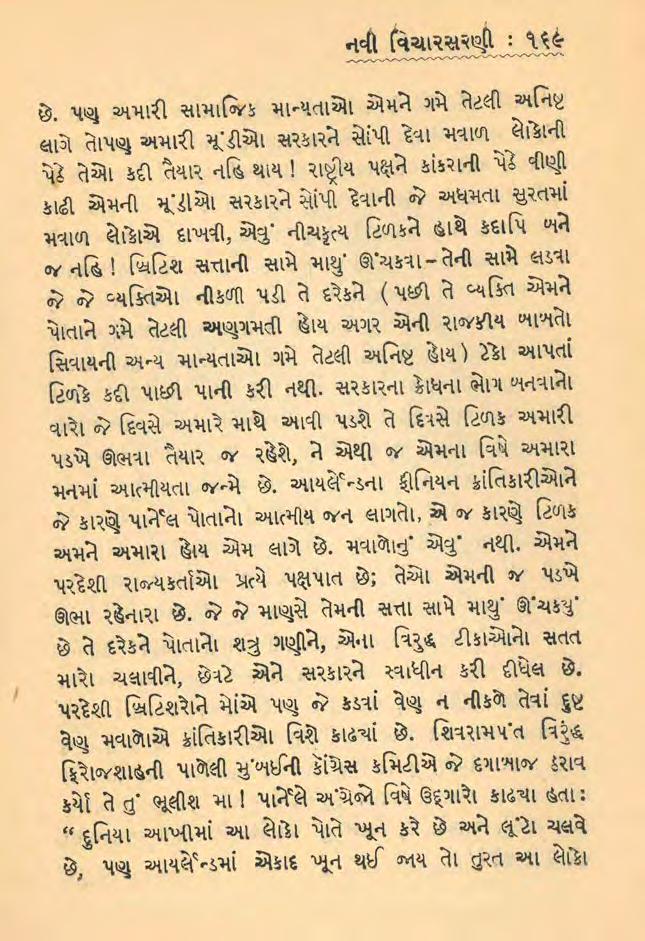 નવી વિચારસરણી : ૧૬૯
છે. પણ અમારી સામાજિક માન્યતાઓ એમને ગમે તેટલી અનિષ્ટ
લાગે તોપણ અમારી મૂંડીઓ સરકારને સોંપી દેવા મવાળ લોકોની
પેઠે તેઓ કદી તૈયાર નહિ થાય! રાષ્ટ્રીય પક્ષને કાંકરાની પેઠે વીણી
કાઢી એમની મૂંડીઓ સરકારને સોંપી દેવાની જે અધમતા સુરતમાં
મવાળ લોકોએ દાખવી, એવું નીચકૃત્ય ટિળકને હાથે કદાપિ બને
જ નહિ! બ્રિટિશ સત્તાની સામે માથું ઊંચકવા – તેની સામે લડવા
જે જે વ્યક્તિઓ નીકળી પડી તે દરેકને (પછી તે વ્યક્તિ એમને
પોતાને ગમે તેટલી અણગમતી હોય અગર એની રાજકીય બાબતો
સિવાયની અન્ય માન્યતાઓ ગમે તેટલી અનિષ્ટ હોય) ટેકો આપતાં
ટિળકે કદી પાછી પાની કરી નથી. સરકારના ક્રોધના ભોગ બનવાનો
વારો જે દિવસે અમારે માથે આવી પડશે તે દિવસે ટિળક અમારી
પડખે ઊભવા તૈયાર જ રહેશે, ને એથી જ એમના વિષે અમારા
મનમાં આત્મીયતા જન્મે છે. આયર્લેન્ડના ફીનિયન ક્રાંતિકારીઓને
જે કારણે પાર્નેલ પોતાનો આત્મીય જન લાગતો, એ જ કારણે ટિળક
અમને અમારા હોય એમ લાગે છે. મવાળોનું એવું નથી. એમને
પરદેશી રાજ્યકર્તાઓ પ્રત્યે પક્ષપાત છે; તેઓ એમની જ પડખે
ઊભા રહેનારા છે. જે જે માણસે તેમની સત્તા સામે માથું ઊંચક્યું
છે તે દરેકને પોતાનો શત્રુ ગણીને, એના વિરુદ્ધ ટીકાઓનો સતત
મારો ચલાવીને, છેવટે એને સરકારને સ્વાધીન કરી દીધેલ છે.
પરદેશી બ્રિટિશરોને મોંએ પણ જે કડવાં વેણ ન નીકળે તેવાં દુષ્ટ
વેણ મવાળોએ ક્રાંતિકારીઓ વિશે કાઢ્યાં છે. શિવરામપંત વિરુદ્ધ
ફિરોજશાહની પાળેલી મુંબઈની કૉંગ્રેસ કમિટીએ જે દગાબાજ ઠરાવ
કર્યો તે તું ભૂલીશ મા! પાર્નેલે અંગ્રેજો વિષે ઉદ્ગારો કાઢ્યા હતા:
“દુનિયા આખીમાં આ લોકો પોતે ખૂન કરે છે અને લૂંટો ચલવે
છે, પણ આયર્લેન્ડમાં એકાદ ખૂન થઈ જાય તો તુરત આ લોકો